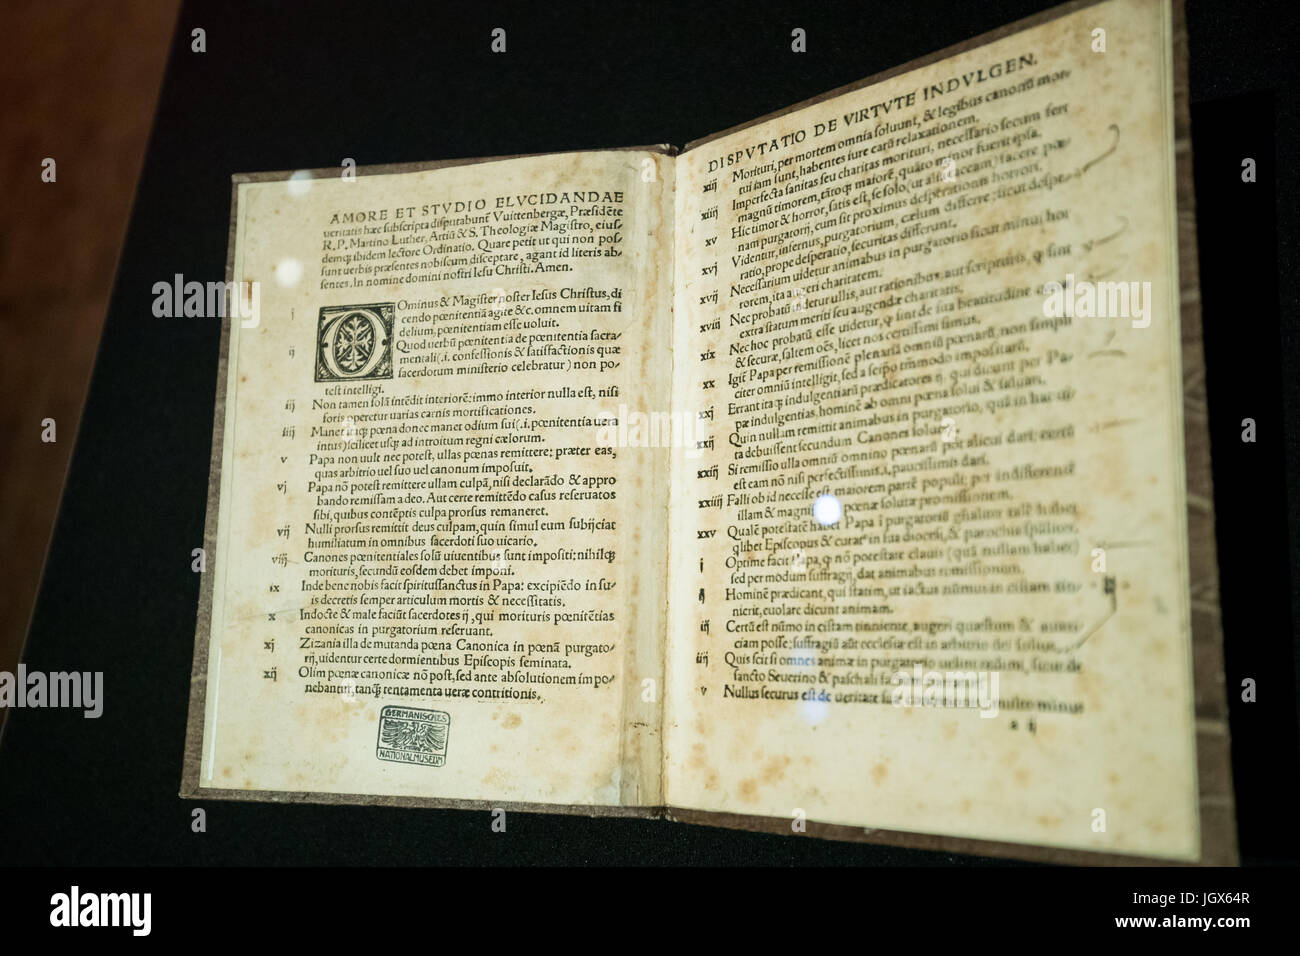 AMORE ET STVDIO ELVCIDANDAE
ueritatis hæc subscripta disputabunť Vuittenbergæ, Præsidēte
R. P. Martino Luther, Artiū & S. Theologiæ Magistro, eius-
demqʒ ibidem lectore Ordinatio. Quare petit ut qui non pos-
sunt uerbis præsentes nobiscum disceptare, agant id literis ab-
sentes. In nomine domini nostri Iesu Christi. Amen.
i DOminus & Magister noster Iesus Christus, di
cendo pœnitentiā agite &c. omnem uitam fi
delium, pœnitentiam esse uoluit.
ij Quod uerbū pœnitentia de pœnitentia sacra-
mentali (.i. confessionis & satisfactionis quæ
sacerdotum ministerio celebratur) non po-
test intelligi.
iij Non tamen solā intēdit interiorē: immo interior nulla est, nisi
foris operetur uarias carnis mortificationes.
iiij Manet itaqʒ pœna donec manet odium sui (.i. pœnitentia uera
intus) scilicet usqʒ ad introitum regni cœlorum.
v Papa non uult nec potest, ullas pœnas remittere: præter eas,
quas arbitrio uel suo uel canonum imposuit.
vj Papa nō potest remittere ullam culpā, nisi declarādo & appro
bando remissam a deo. Aut certe remittēdo casus reseruatos
sibi, quibus contēptis culpa prorsus remaneret.
vij Nulli prorsus remittit deus culpam, quin simul eum subijciat
humiliatum in omnibus sacerdoti suo uicario.
viij Canones pœnitentiales solū uiuentibus sunt impositi: nihilqʒ
morituris, secundū eosdem debet imponi.
ix Inde bene nobis facit spiritussanctus in Papa: excipiēdo in su-
is decretis semper articulum mortis & necessitatis.
x Indocte & male faciūt sacerdotes ij, qui morituris pœnitētias
canonicas in purgatorium reseruant.
xj Zizania illa de mutanda pœna Canonica in pœnā purgato-
rij, uidentur certe dormientibus Episcopis seminata.
xij Olim pœnæ canonicæ nō post, sed ante absolutionem impo
nebantur, tanqʒ tentamenta ueræ contritionis.
GERMANISCHES
NATIONALMUSEUM
DISPVTATIO DE VIRTVTE INDVLGEN.
xiij Morituri, per mortem omnia soluunt, & legibus canonū mor-
tui iam sunt, habentes iure earū relaxationem.
xiiij Imperfecta sanitas seu charitas morituri, necessario secum fert
magnū timorem, tātoqʒ maiorē, quāto minor fuerit ipsa.
xv Hic timor & horror, satis est, se solo (ut alia taceam) facere pœ-
nam purgatorij, cum sit proximus desperationis horrori.
xvj Videntur, infernus, purgatorium, cælum differre: sicut despe-
ratio, prope desperatio, securitas differunt.
xvij Necessarium uidetur animabus in purgatorio sicut minui hor
rorem, ita augeri charitatem.
xviij Nec probatū uidetur ullis, aut rationibus, aut scripturis, q̃ sint
extra statum meriti seu augendæ charitatis.
xix Nec hoc probatū esse uidetur, q̃ sint de sua beatitudine certæ
& securæ, saltem oēs, licet nos certissimi simus.
xx Igiť Papa per remissionē plenariā omniū pœnarū, non simpli
citer omniū intelligit, sed a seipo tmmodo impositarū.
xxj Errant itaqʒ indulgentiarū prædicatores ij, qui dicunt per Pa-
pæ indulgentias, hominē ab omni pœna solui & saluari.
xxij Quin nullam remittit animabus in purgatorio, quā in hac ui-
ta debuissent secundum Canones soluere.
xxiij Si remissio ulla omniū omnino pœnarū pōt alicui dari: certū
est eam nō nisi perfectissimis .i. paucissimis dari.
xxiiij Falli ob id necesse est, maiorem partē populi: per indifferentē
illam & magnificā pœnæ solutæ promissionem.
xxv Qualē potestatē habet Papa i purgatoriū gñaliter talē habet
qlibet Episcopus & curatꝰ in sua diocesi, & parochia spāliter.
i Optime facit Papa, q̃ nō potestate clauis (quā nullam habet)
sed per modum suffragij, dat animabus remissionem.
ij Hominē prædicant, qui statim, ut iactus nūmus in cistam tin-
nierit, euolare dicunt animam.
iij Certū est nūmo in cistam tinniente, augeri quæstum & auari-
ciam posse: suffragiū aūt ecclesiæ est in arbitrio dei solius.
iiij Quis scit si omnes animæ in purgatorio uelint redimi, sicut de
sancto Seuerino & paschali factum narratur.
v Nullus securus est de ueritate suæ contritionis, multo minus
a ij
a
alamy stock photo
alamy
Image ID: JGX64R
www.alamy.com